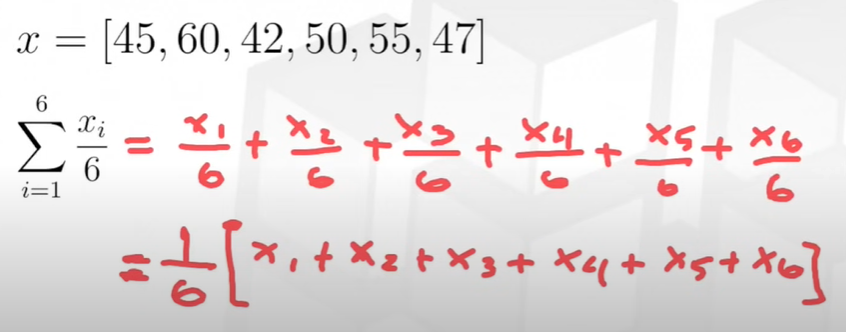 x = [45, 60, 42, 50, 55, 47]
\sum_{i=1}^{6} \frac{x_i}{6} = \frac{x_1}{6} + \frac{x_2}{6} + \frac{x_3}{6} + \frac{x_4}{6} + \frac{x_5}{6} + \frac{x_6}{6}
= \frac{1}{6} [x_1 + x_2 + x_3 + x_4 + x_5 + x_6]